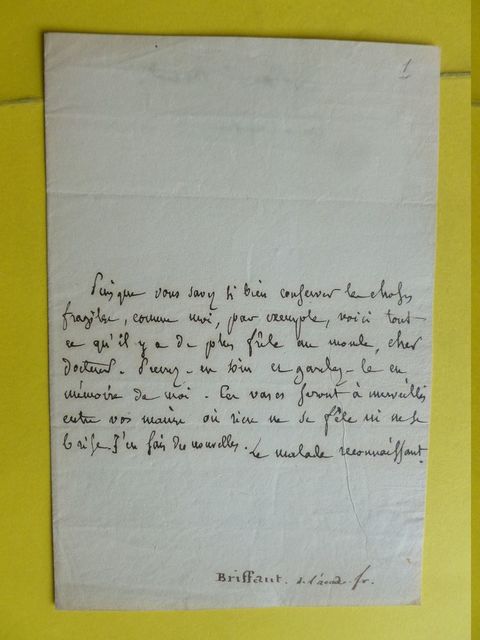 1
Puisque vous savez si bien conserver les choses
fragiles, comme moi, par exemple, voici tout
ce qu'il y a de plus frêle au monde, cher
docteur. Prenez-en soin et gardez-le en
mémoire de moi. Ces vases seront à merveilles
entre vos mains où rien ne se fêle ni ne se
brise. J'en sais des nouvelles. Le malade reconnaissant.
Briffaut. de l'acad. fr.